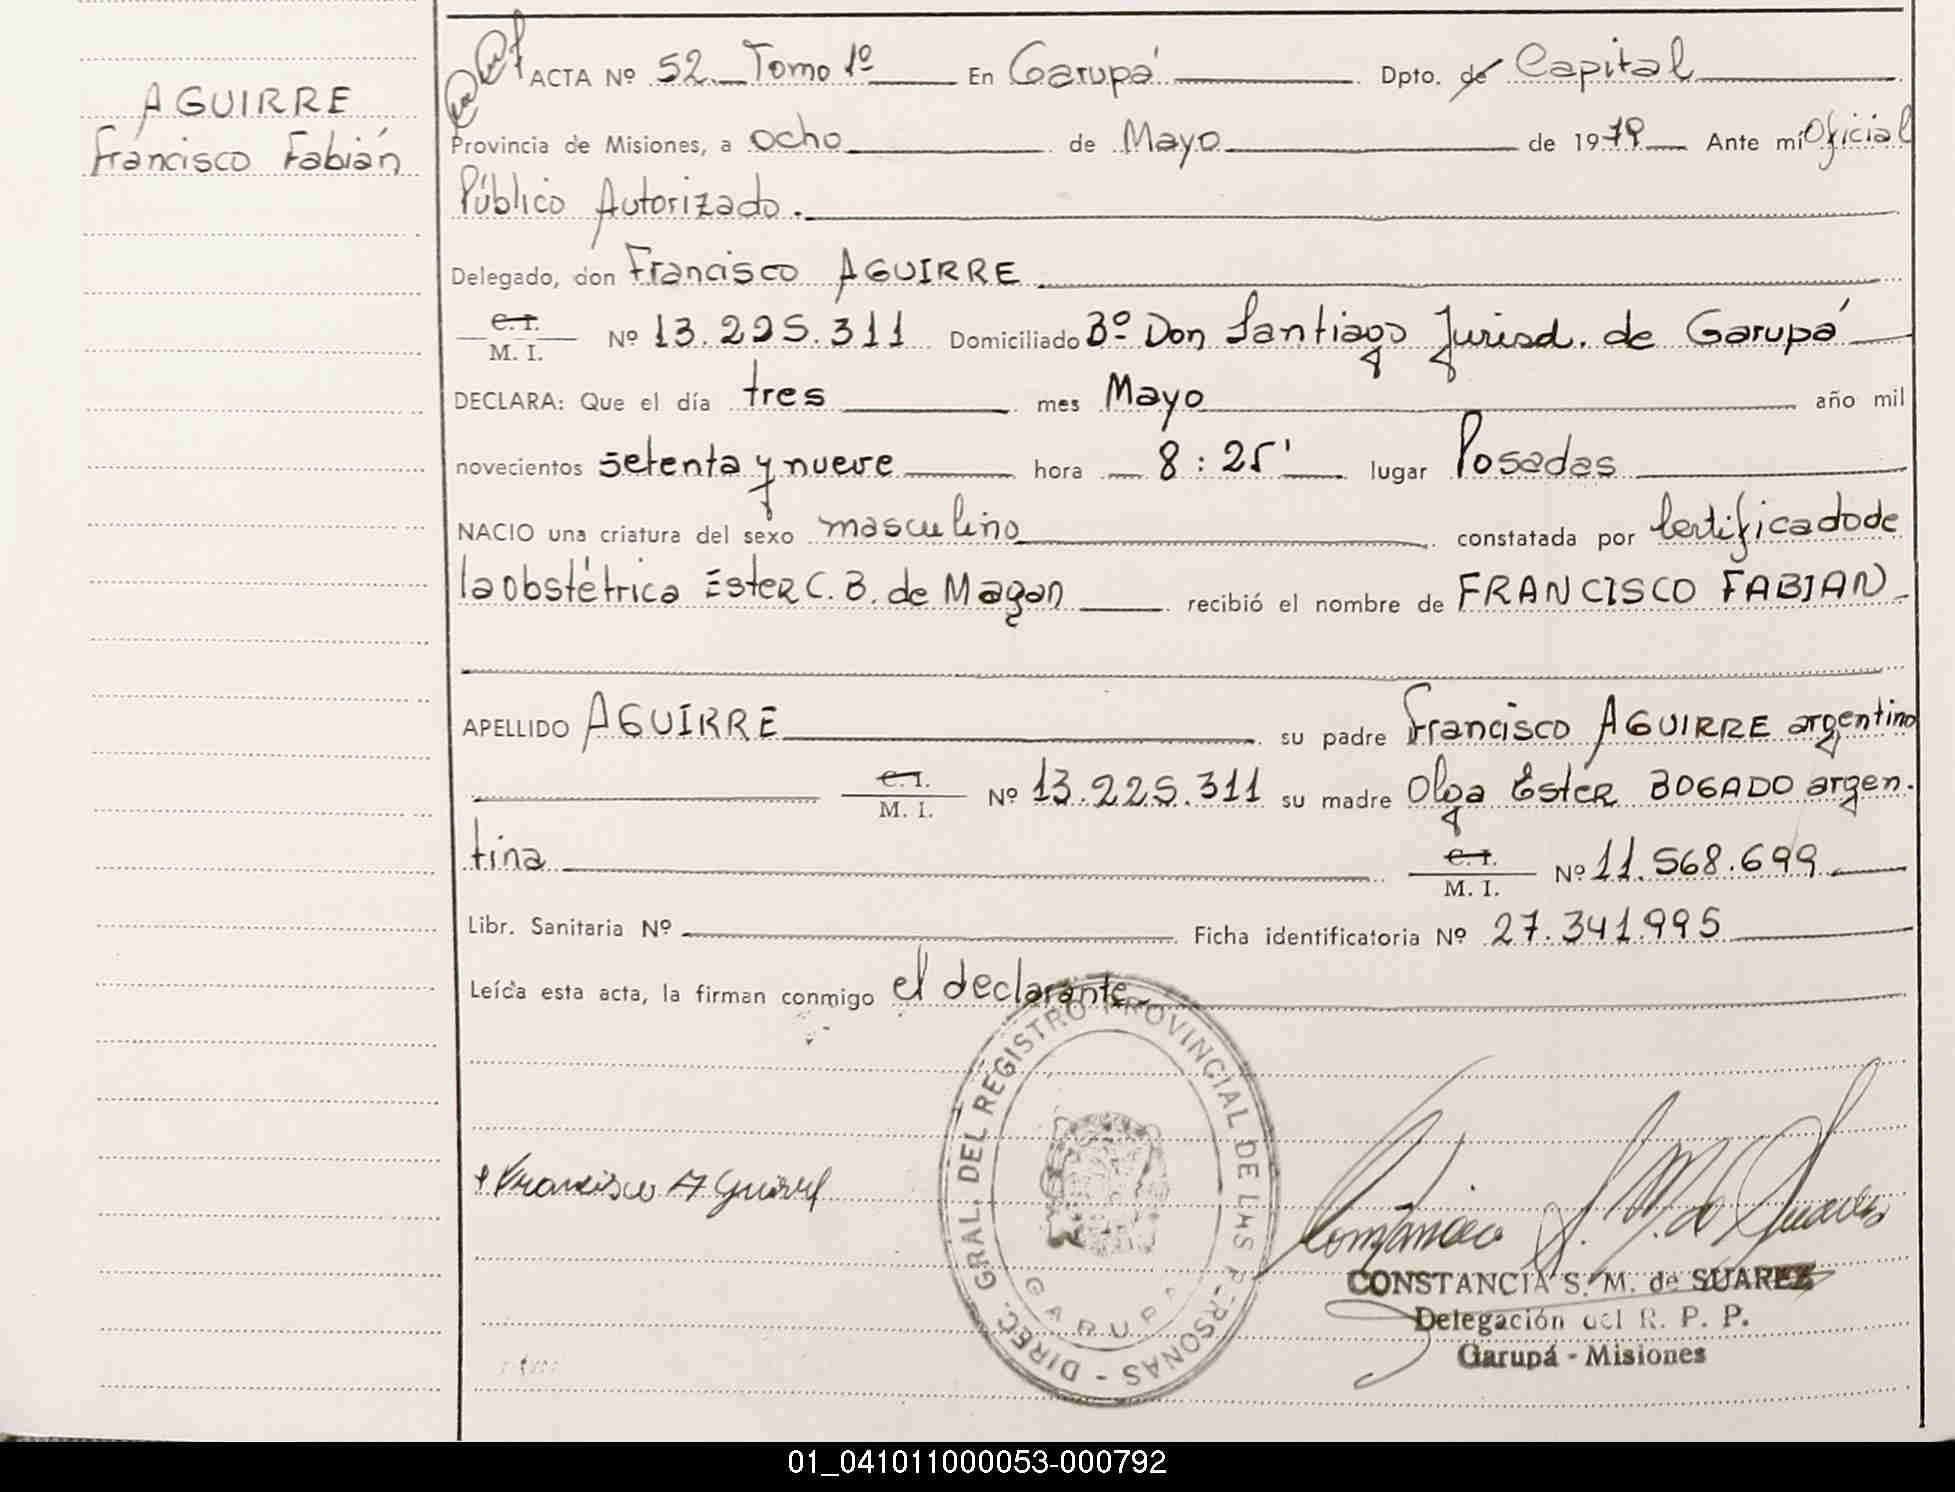 AGUIRRE
Francisco Fabián
ACTA Nº 52. Tomo 1º En Garupá Dpto. de Capital
Provincia de Misiones, a ocho de Mayo de 1979 Ante mí Oficial
Público Autorizado.
Delegado, don Francisco AGUIRRE
C. I.
M. I. Nº 13.225.311 Domiciliado Bº Don Santiago Jurisd. de Garupá
DECLARA: Que el día tres mes Mayo año mil
novecientos setenta y nueve hora 8:25' lugar Posadas
NACIO una criatura del sexo masculino constatada por Certificado de
la obstétrica Ester C. B. de Magan recibió el nombre de FRANCISCO FABIAN
APELLIDO AGUIRRE su padre Francisco AGUIRRE argentino
C. I.
M. I. Nº 13.225.311 su madre Olga Ester BOGADO argen.
tina C. I.
M. I. Nº 11.568.699
Libr. Sanitaria Nº Ficha identificatoria Nº 27.341.995
Leída esta acta, la firman conmigo el declarante
DIREC. GRAL. DEL REGISTRO PROVINCIAL DE LAS PERSONAS -
GARUPA
Francisco Aguirre
CONSTANCIA S. M. de SUAREZ
Delegación del R. P. P.
Garupá - Misiones
01_041011000053-000792